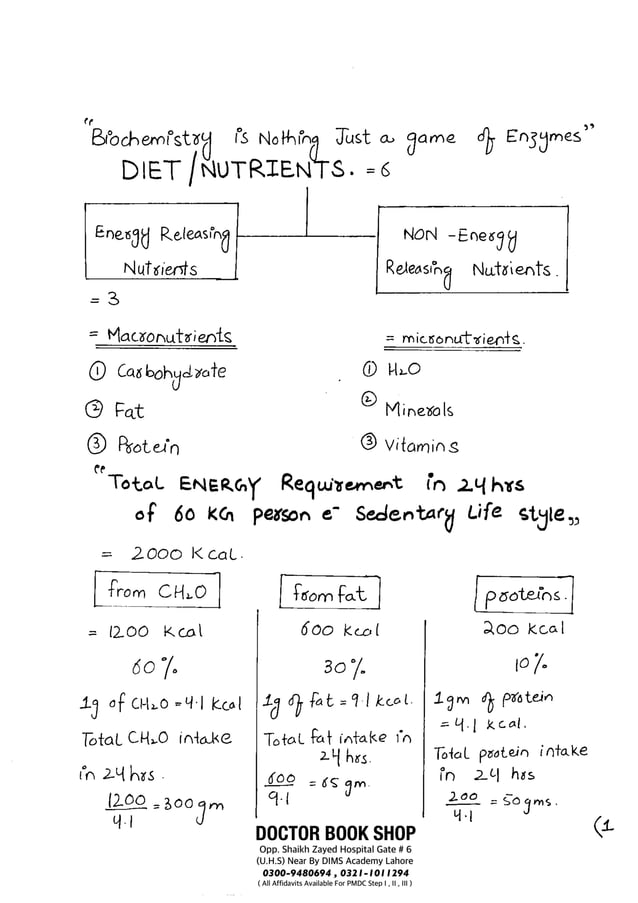 "Biochemistry is Nothing Just a game of Enzymes"
DIET/NUTRIENTS. = 6
Energy Releasing
Nutrients
NON - Energy
Releasing Nutrients.
= 3
= Macronutrients
① Carbohydrate
② Fat
③ Protein
= micronutrients.
① H₂O
② Minerals
③ Vitamins
"Total ENERGY Requirement in 24 hrs
of 60 KG person c̄ Sedentary Life style„
= 2000 Kcal.
from CH₂O
= 1200 Kcal
60%
1g of CH₂O = 4.1 kcal
Total CH₂O intake
in 24 hrs.
1200/4.1 = 300 gm
from fat
600 kcal
30%.
1g of fat = 9.1 kcal.
Total fat intake in
24 hrs.
600/9.1 = 65 gm.
proteins.
200 kcal
10%.
1gm of protein
= 4.1 kcal.
Total protein intake
in 24 hrs
200/4.1 = 50 gms.
(1
DOCTOR BOOK SHOP
Opp. Shaikh Zayed Hospital Gate # 6
(U.H.S) Near By DIMS Academy Lahore
0300-9480694 , 0321-1011294
( All Affidavits Available For PMDC Step I , II , III )